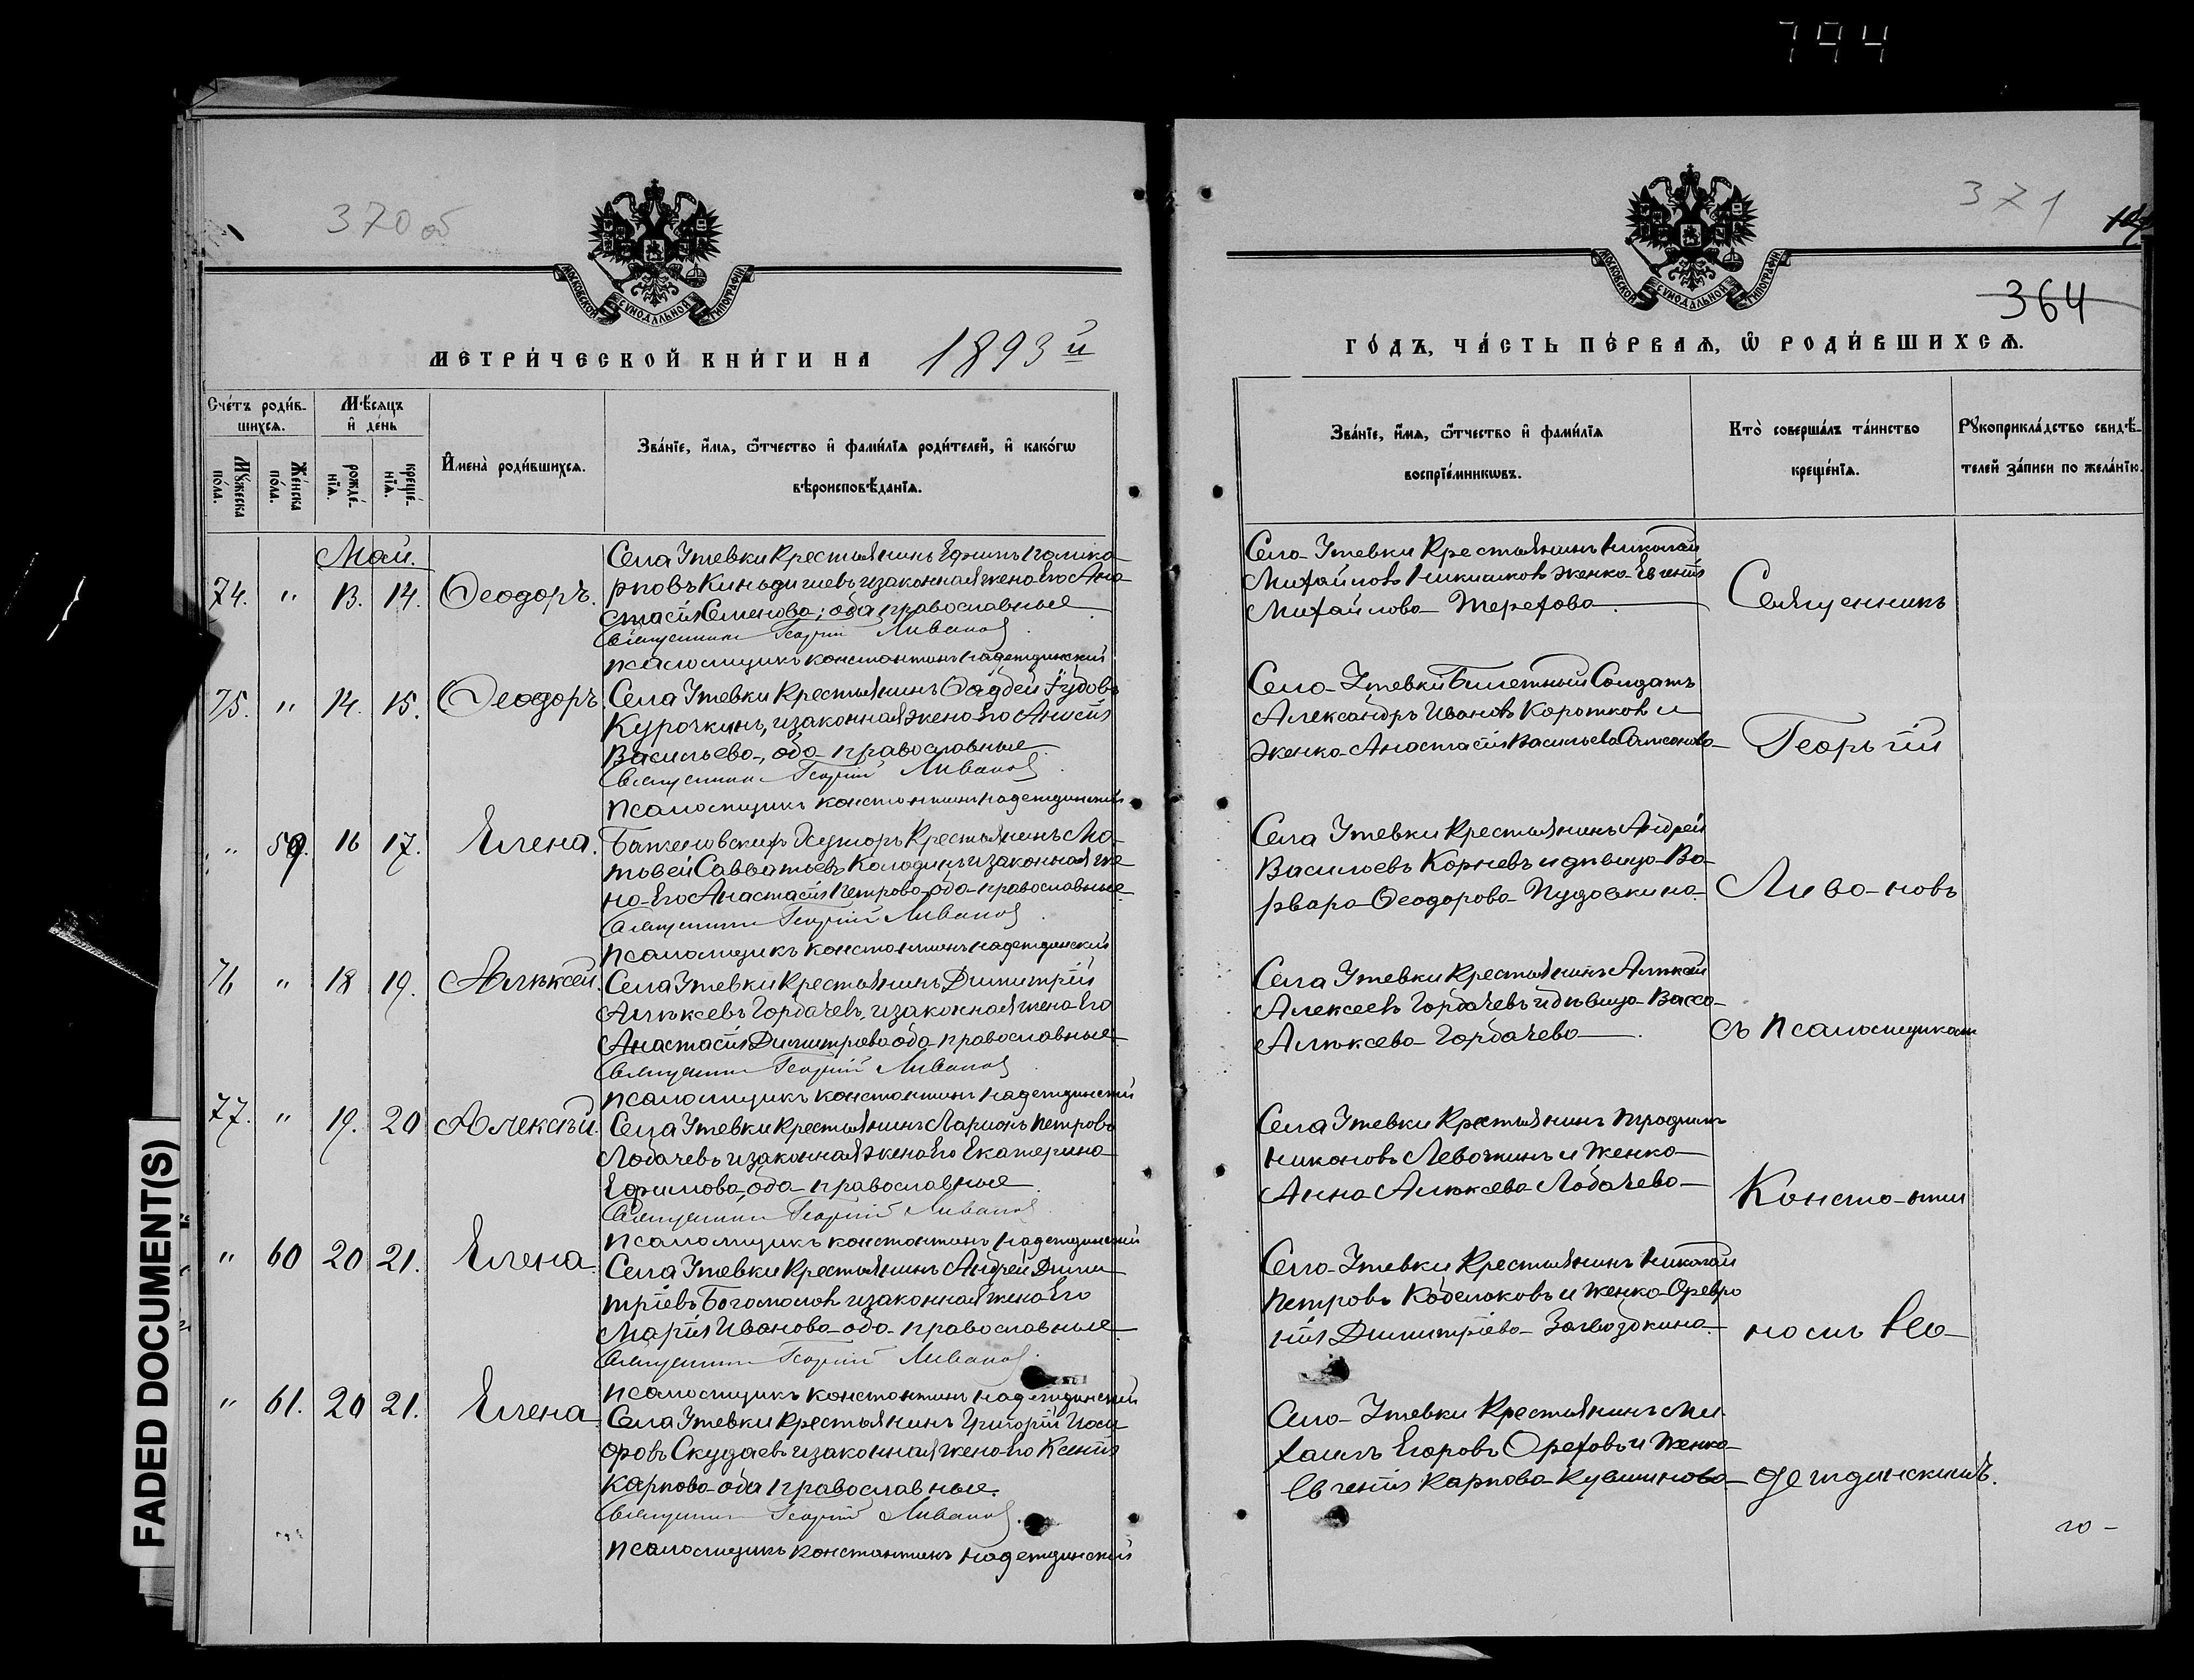 794
370 об
МОСКОВСКОЙ СѴНОДАЛЬНОЙ ТИПОГРАФІИ
МЕТРИ́ЧЕСКОЙ КНИ́ГИ НА 1893 й
Сче́тъ роди́в-
шихсѧ.
Мѣ́сяцъ
и҆ де́нь
И҆мена̀ роди́вшихсѧ.
Зва́нїе, и҆́мѧ, ѻ҆́тчество и҆ фами́лїѧ роди́телей, и҆ како́гѡ
вѣроисповѣ́данїѧ.
Мꙋ́жеска
по́ла.
Же́нска
по́ла.
рожде́-
нїѧ.
креще́-
нїѧ.
Май.
74. " 13. 14. Ѳеодоръ.
Села Утевки Крестьянинъ Ефимъ Полика-
рповъ Киньдигиевъ и законная жена Его Ана-
стасія Семенова; оба православные
Священникъ Георгій Ливановъ
Псаломщикъ Константинъ Надеждинский
75. " 14. 15. Ѳеодоръ.
Села Утевки Крестьянинъ Ѳаддей Іудовъ
Курочкинъ, и законная жена Его Анисія
Васильева, оба православные
Священникъ Георгій Ливановъ
Псаломщикъ Константинъ Надеждинский
" 59. 16 17. Елена.
Баженовскихъ Хуторъ Крестьянинъ Ма-
твей Савватьевъ Колодинъ и законная же-
на Его Анастасія Петрова оба православные
Священникъ Георгій Ливановъ
Псаломщикъ Константинъ Надеждинский
76 " 18 19. Алѣксей.
Села Утевки Крестьянинъ Димитрій
Алѣксевъ Горбачевъ, и законная жена Его
Анастасія Димитриева оба православные
Священникъ Георгій Ливановъ
Псаломщикъ Константинъ Надеждинский
77. " 19. 20 Алексѣй.
Села Утевки Крестьянинъ Ларионъ Петровъ
Лобачевъ и законная жена Его Екатерина
Ефимова, оба православные
Священникъ Георгій Ливановъ
Псаломщикъ Константинъ Надеждинский
" 60 20 21. Елена.
Села Утевки Крестьянинъ Андрей Дими-
тріевъ Богомолов и законная жена Его
Марія Иванова оба православные
Священникъ Георгій Ливановъ
Псаломщикъ Константинъ Надеждинский
" 61. 20 21. Елена
Села Утевки Крестьянинъ Григорій
Скудаевъ и законная жена Его Ксенія
Карпова оба православные.
Священникъ Георгій Ливановъ
Псаломщикъ Константинъ Надеждинский
FADED DOCUMENT(S)
371
364
МОСКОВСКОЙ СѴНОДАЛЬНОЙ ТИПОГРАФІИ
ГО́ДЪ, ЧА́СТЬ ПЕ́РВАѦ, Ѡ҆ РОДИ́ВШИХСѦ.
Зва́нїе, и҆́мѧ, ѻ҆́тчество и҆ фами́лїѧ
воспрїе́мникѡвъ.
Кто̀ соверша́лъ та́инство
креще́нїѧ.
Рꙋкоприкла́дство свидѣ́-
телей за́писи по жела́нїю.
Села Утевки Крестьянинъ Николай
Михайловъ Никишков женка Евгенія
Михайлова Терехова
Села Утевки Билетный Солдатъ
Александръ Ивановъ Коротков и
женка Анастасія Васильева Самсонова
Села Утевки Крестьянинъ Андрей
Васильевъ Корневъ и дѣвица Ва-
рвара Ѳеодорова Пудовкина.
Села Утевки Крестьянинъ Алѣксей
Алексеевъ Горбачевъ и дѣвица Васса
Алѣксева Горбачева
Села Утевки Крестьянинъ Трофимъ
Никоновъ Левочкинъ и женка
Анна Алѣксева Лобачева
Села Утевки Крестьянинъ Николай
Петровъ Кобелоковъ и женка Ѳевро
нія Димитріева
Села Утевки Крестьянинъ Ми-
хаилъ Егоровъ Ореховъ и женка
Евгенія Карпова Кувшинова
Священникъ
Георгій
Ливановъ
съ псаломщикомъ
Конста-нти
номъ На-
деждинскимъ.